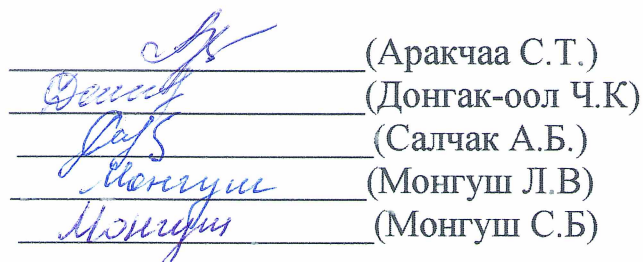 (Аракчаа С.Т.)
(Донгак-оол Ч.К)
(Салчак А.Б.)
Монгуш (Монгуш Л.В)
Монгуш (Монгуш С.Б)